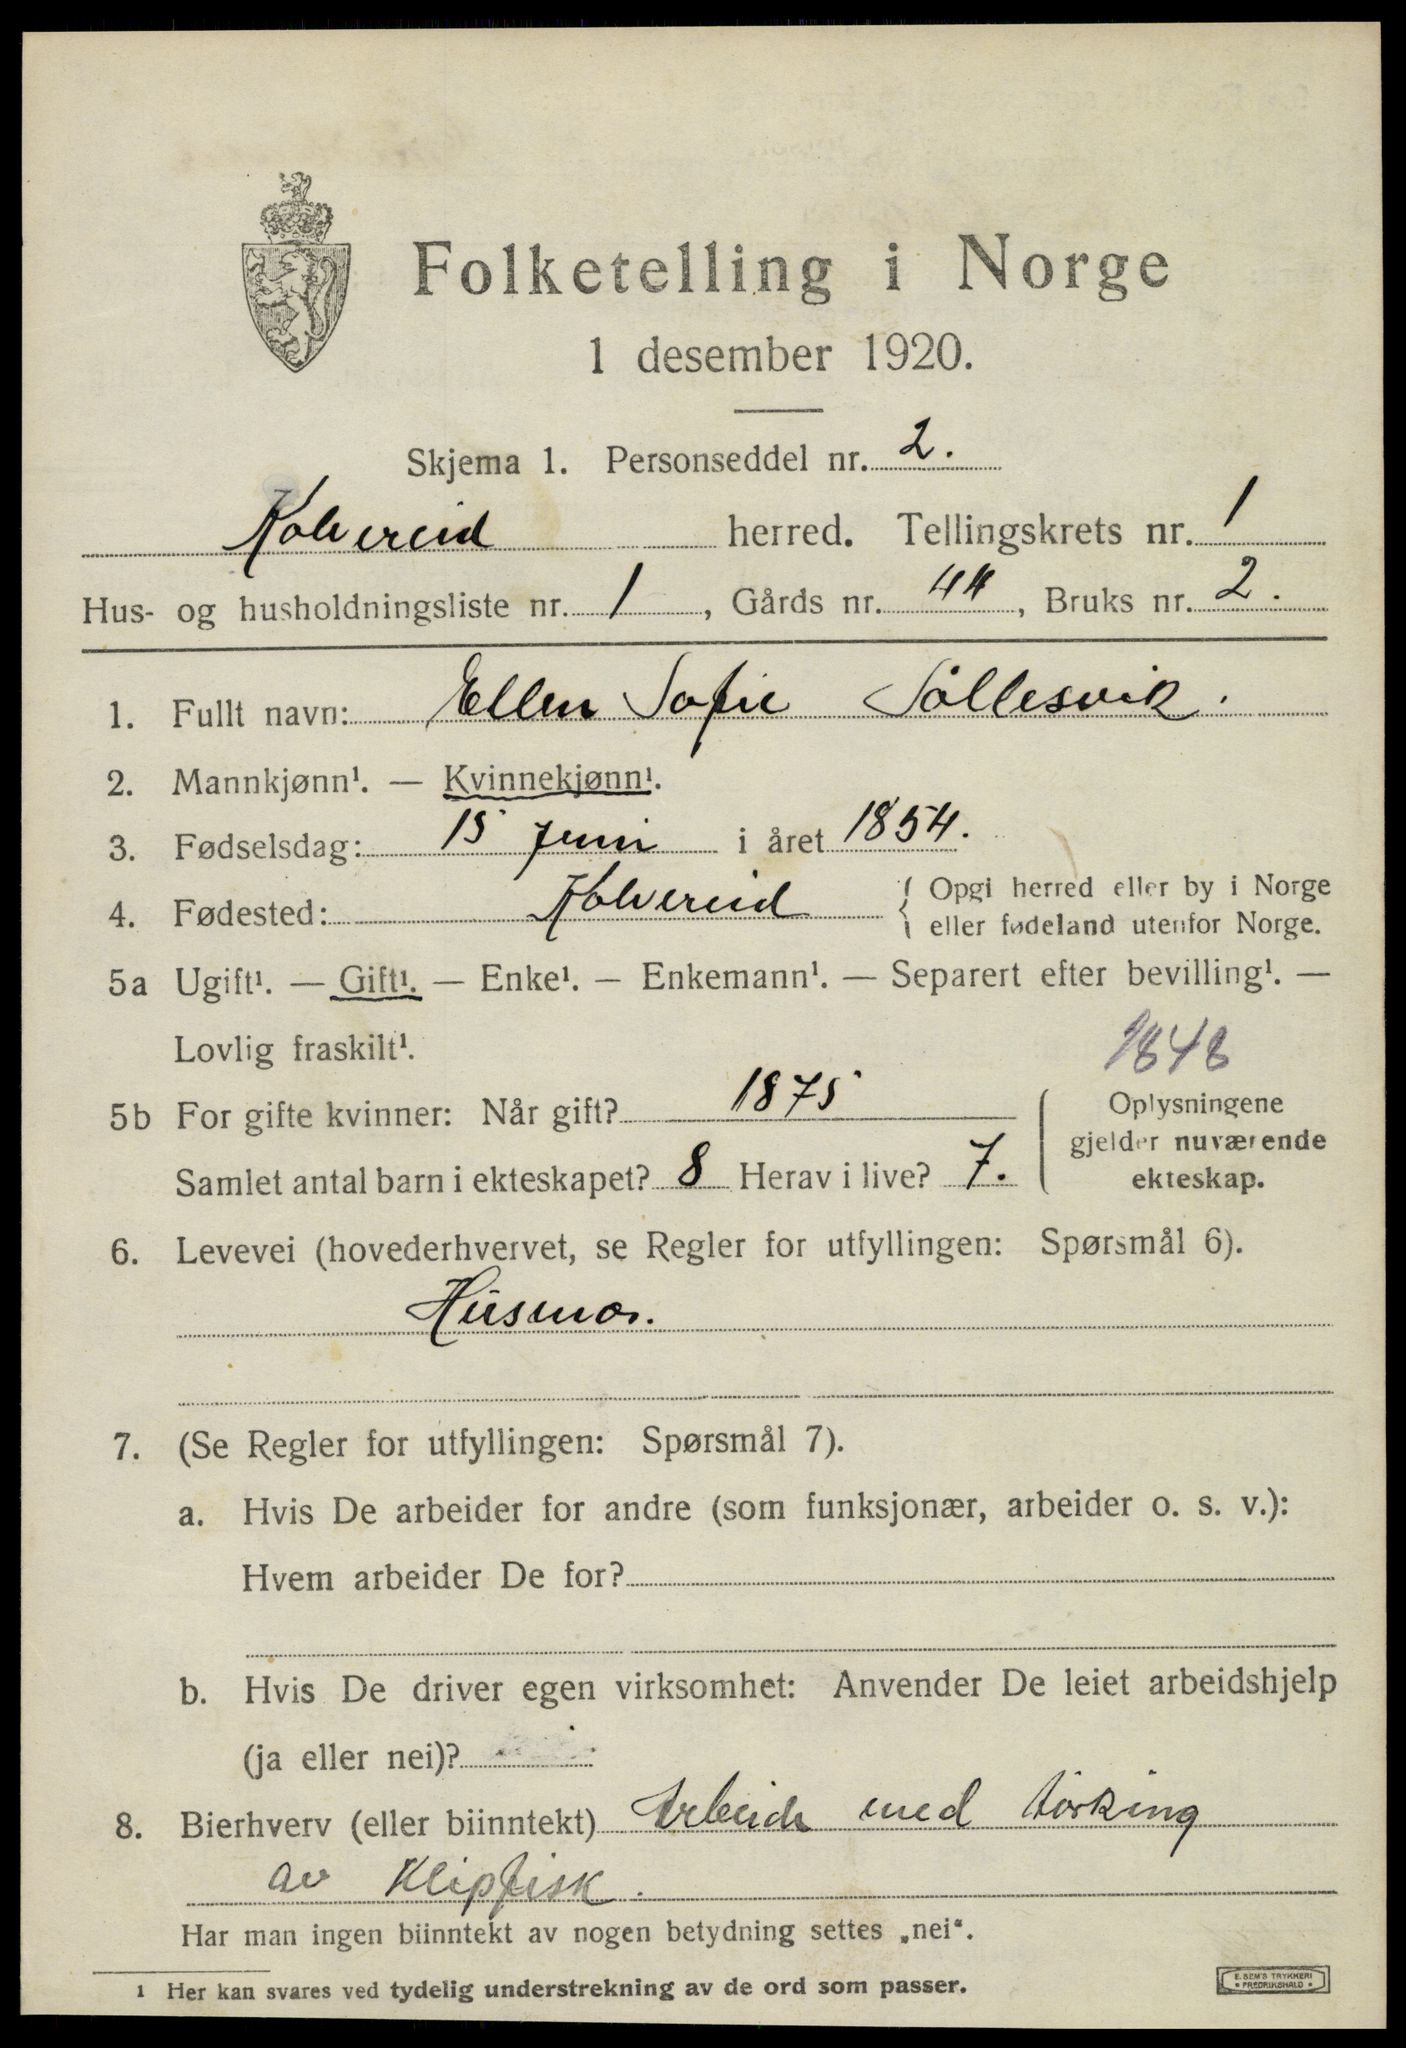 Folketelling i Norge
1 desember 1920.
Skjema 1. Personseddel nr. 2.
Kolvereid herred. Tellingskrets nr. 1
Hus- og husholdningsliste nr. 1, Gårds nr. 44, Bruks nr. 2.
1. Fullt navn: Ellen Sofie Sållesvik.
2. Mannkjønn¹. — Kvinnekjønn¹.
3. Fødselsdag: 15 juni i året 1854.
4. Fødested: Kolvereid { Opgi herred eller by i Norge
eller fødeland utenfor Norge.
5a Ugift¹. — Gift¹. — Enke¹. — Enkemann¹. — Separert efter bevilling¹. —
Lovlig fraskilt¹.
1848
5b For gifte kvinner: Når gift? 1875
Samlet antal barn i ekteskapet? 8 Herav i live? 7.
Oplysningene
gjelder nuværende
ekteskap.
6. Levevei (hovederhvervet, se Regler for utfyllingen: Spørsmål 6).
Husmor.
7. (Se Regler for utfyllingen: Spørsmål 7).
a. Hvis De arbeider for andre (som funksjonær, arbeider o. s. v.):
Hvem arbeider De for?
b. Hvis De driver egen virksomhet: Anvender De leiet arbeidshjelp
(ja eller nei)?
8. Bierhverv (eller biinntekt) Arbeide med törking
av Klipfisk.
Har man ingen biinntekt av nogen betydning settes „nei“.
¹ Her kan svares ved tydelig understrekning av de ord som passer.
E. SEM'S TRYKKERI
• FREDRIKSHALD •